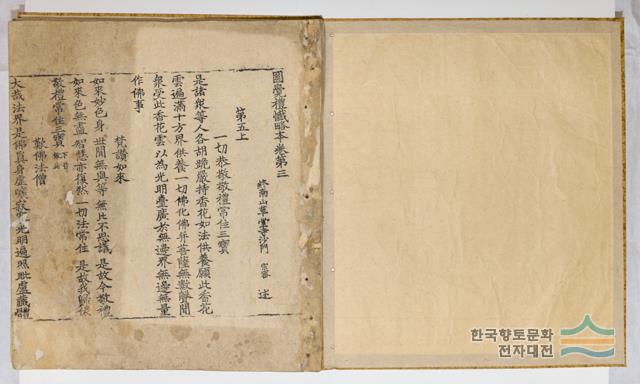 圓覺禮懺略本卷第三
終南山草堂寺沙門 宗密 述
第五上
一切恭敬敬禮常住三寶
是諸衆等人各胡跪嚴持香花如法供養願此香花
雲遍滿十方界供養一切佛化佛并菩薩無數聲聞
衆受此香花雲以爲光明臺廣於無邊界無邊無量
作佛事
梵讚如來
如來妙色身 世間無與等 無比不思議 是故今敬禮
如來色無盡 智慧亦復然 一切法常住 是故我歸依
敬禮常住三寶
歎佛法僧
大哉法界是佛真身虛曠寂光明遍照毗盧藏體
한국향토문화
전자대전